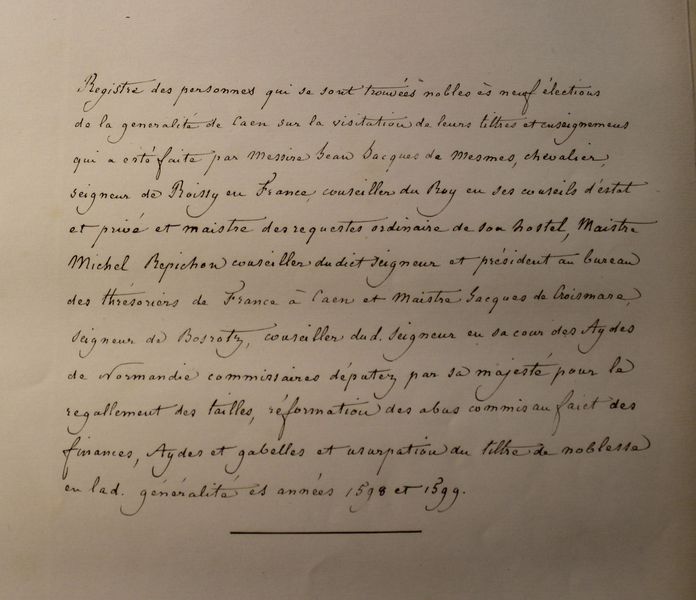 Registre des personnes qui se sont trouvées nobles ès neuf élections
de la generalité de Caen sur la visitation de leurs tiltres et enseignemens
qui a esté faite par Messire Jean Jacques de Mesmes, chevalier,
seigneur de Roissy en France, conseiller du Roy en ses conseils d'estat
et privé et maistre des requestes ordinaire de son hostel, Maistre
Michel Repichon conseiller dudict seigneur et président au bureau
des thrésoriers de France à Caen et Maistre Jacques de Croismare,
seigneur de Bosrotz, conseiller dud. seigneur en sa cour des Aydes
de Normandie commissaires députez par sa majesté pour le
regallement des tailles, réformation des abus commis au faict des
finances, Aydes et gabelles et usurpation du tiltre de noblesse
en lad. généralité ès années 1598 et 1599.